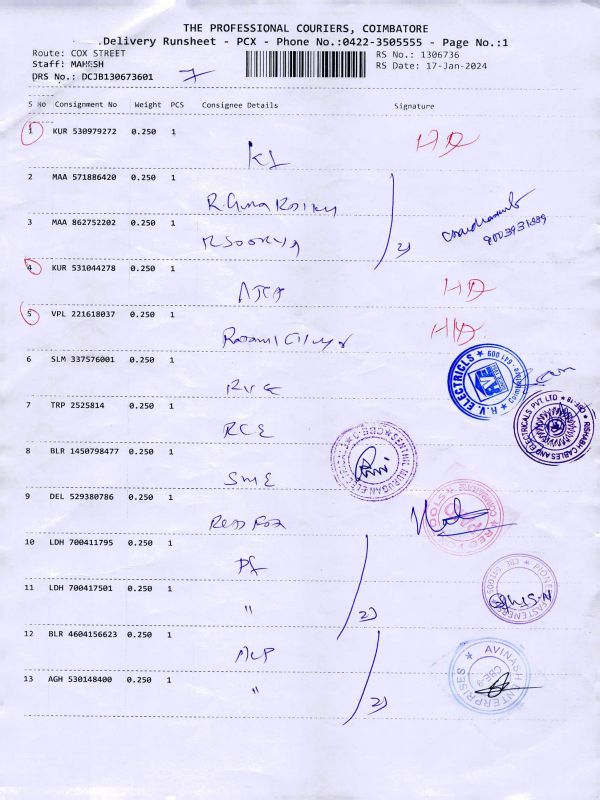 THE PROFESSIONAL COURIERS, COIMBATORE
Delivery Runsheet - PCX - Phone No.:0422-3505555 - Page No.:1
Route: COX STREET
Staff: MAHESH
DRS No.: DCJB130673601
7
RS No.: 1306736
RS Date: 17-Jan-2024
S No Consignment No Weight PCS Consignee Details Signature
1 KUR 530979272 0.250 1
HD
2 MAA 571886420 0.250 1
3 MAA 862752202 0.250 1
R SOORYA
2)
4 KUR 531044278 0.250 1
HD
5 VPL 221618037 0.250 1
HD
6 SLM 337576001 0.250 1
R.V. ELECTRICLS
7 TRP 2525814 0.250 1
RCE
RISHABH CABLES AND ELECTRICALS PVT LTD
8 BLR 1450798477 0.250 1
SME
SENTHIL MURUGAN ELECTRICALS CBE
9 DEL 529380786 0.250 1
Red Fox
10 LDH 700411795 0.250 1
PF
11 LDH 700417501 0.250 1
"
2)
PIONEER FASTENERS
12 BLR 4604156623 0.250 1
13 AGH 530148400 0.250 1
"
2)
AVINASH ENTERPRISES
CBE-9